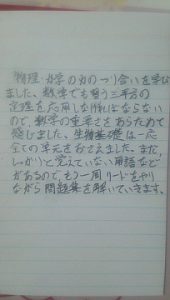 物理 力学の力のつり合いを学び
ました。数学でも習う三平方の
定理を応用しなければならない
ので、数学の重要さをあらためて
感じました。生物基礎は一応
全ての単元をおさえました。まだ
しっかりと覚えていない用語など
があるので、もう一周リードをやり
ながら問題集を解いていきます。